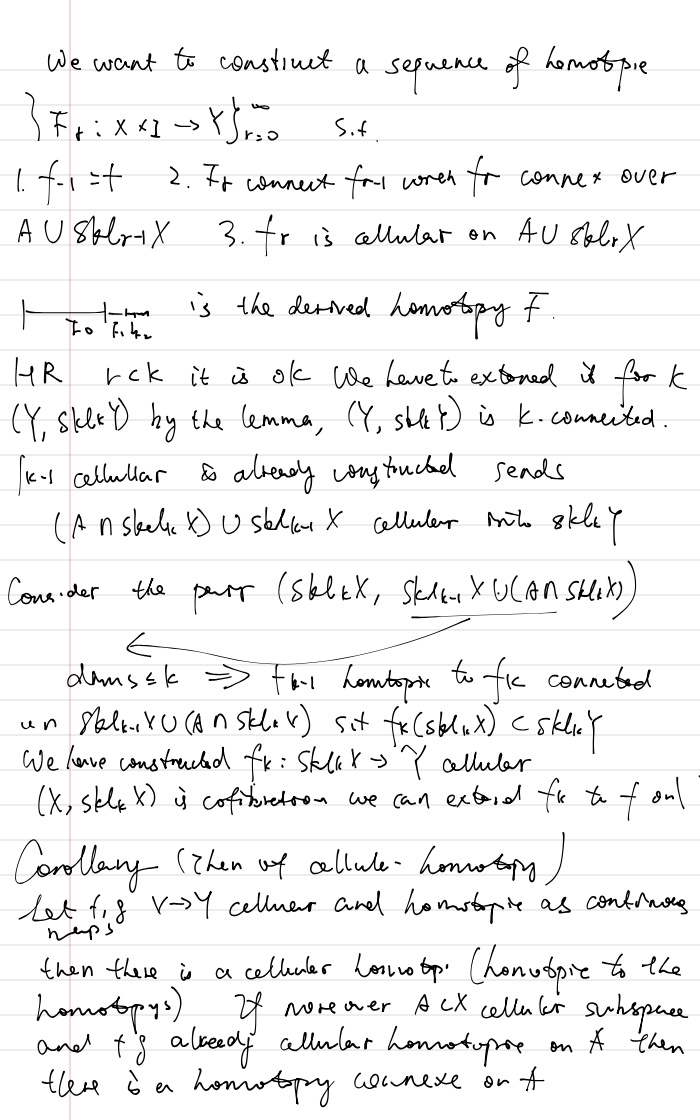 We want to construct a sequence of homotopie
{F_r : X×I → Y}_{r=0}^∞ s.t.
1. f_{-1} = f 2. F_r connect f_{r-1} f_r connex over
A ∪ skl_{r-1}X 3. f_r is cellular on A ∪ skl_rX
F_0 F_1 F_2 is the derived homotopy F.
HR r<k it is ok We have to extoned it for k
(Y, skl_kY) by the lemma, (Y, skl_kY) is k-connected.
f_{k-1} cellullar is already constructed sends
(A ∩ skel_kX) ∪ skl_{k-1}X cellular into skl_kY
Consider the pair (skl_kX, skl_{k-1}X ∪ (A ∩ skl_kX))
dims ≤ k ⟹ f_{k-1} homtopic to f_k conneted
on skl_{k-1}X ∪ (A ∩ skl_kX) s.t f_k(skl_kX) ⊂ skl_kY
We have constructed f_k : skl_kX → Y cellular
(X, skl_kX) is cofibration we can extend f_k to f on
Corollary (Then of cellule- homotopy)
Let f, g X→Y cellular and homotopic as continous
maps
then there is a cellular homotop. (homotopic to the
homotopys) If moreover A⊂X cellular subspace
and f g alreedj cellular homotopic on A then
there is a homotopy connexe on A